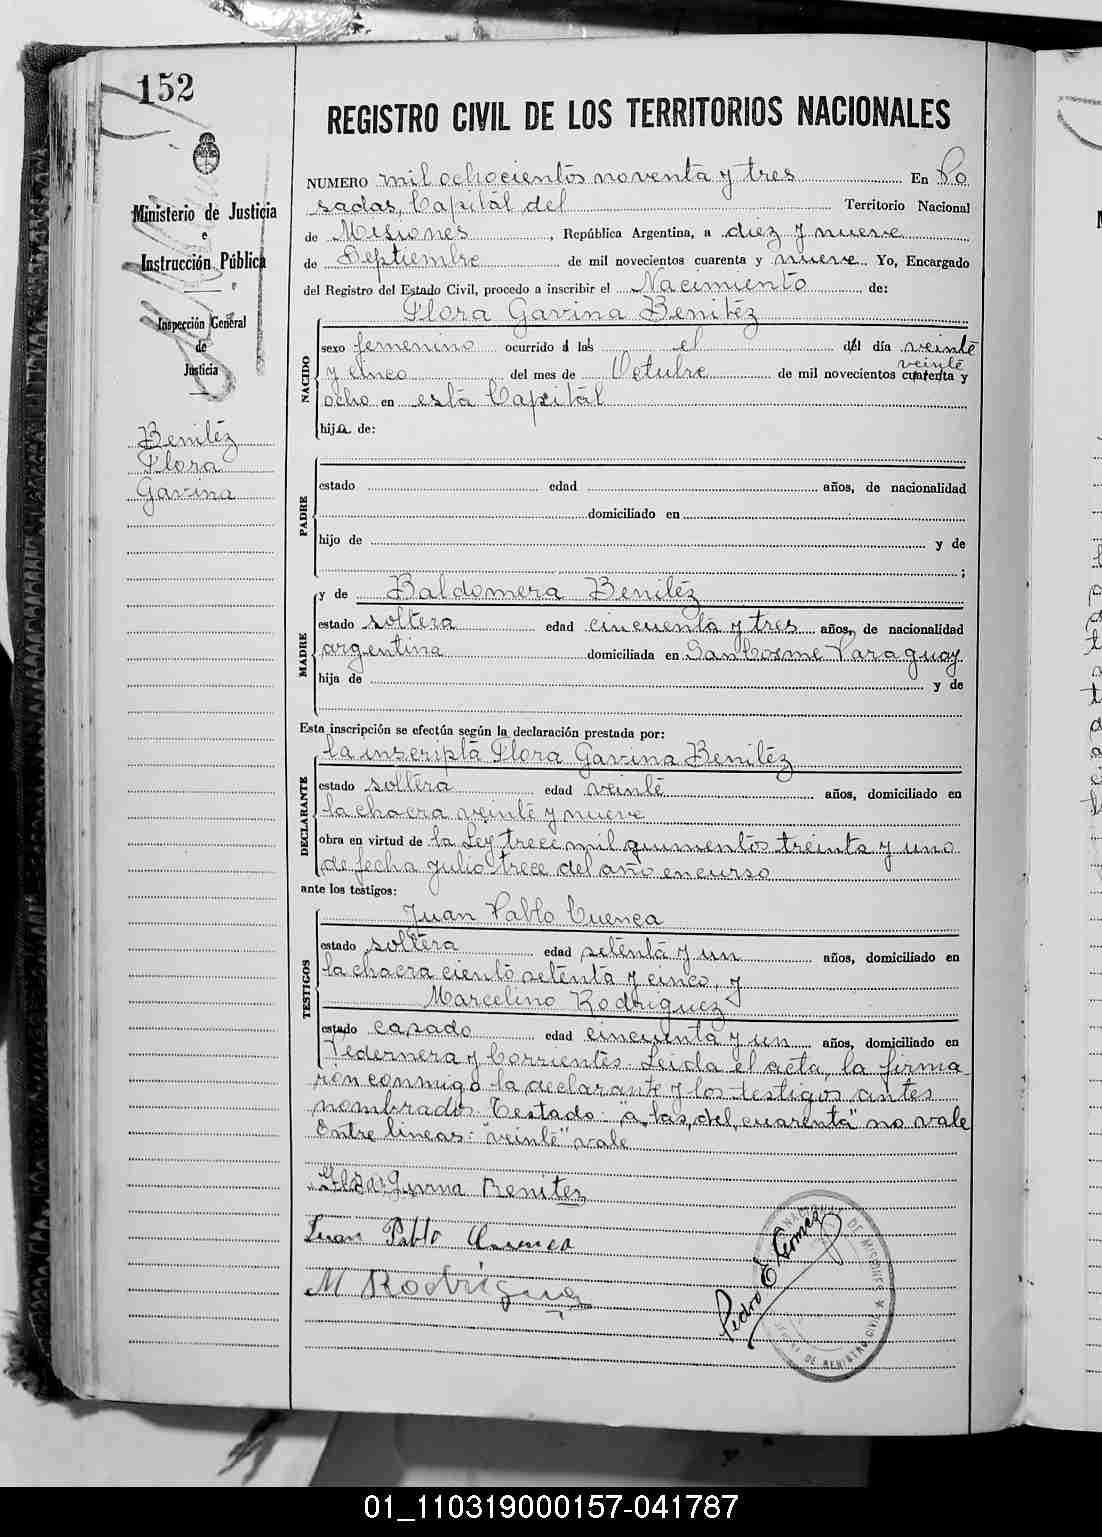 152
Ministerio de Justicia
e
Instrucción Pública
Inspección General
de
Justicia
Benitéz
Flora
Gavina
REGISTRO CIVIL DE LOS TERRITORIOS NACIONALES
NUMERO mil ochocientos noventa y tres En Po
sadas, Capitál del Territorio Nacional
de Misiones, República Argentina, a diez y nueve
de Septiembre de mil novecientos cuarenta y nueve Yo, Encargado
del Registro del Estado Civil, procedo a inscribir el Nacimiento de:
Flora Gavina Benitéz
NACIDO
sexo femenino ocurrido á las el del día veinte
veinte
y cinco del mes de Octubre de mil novecientos cuarenta y
ocho en esta Capitál
hija de:
PADRE
estado edad años, de nacionalidad
domiciliado en
hijo de y de
;
MADRE
y de Baldomera Benitéz
estado soltera edad cincuenta y tres años, de nacionalidad
argentina domiciliada en San Cosme Paraguay
hija de y de
Esta inscripción se efectúa según la declaración prestada por:
DECLARANTE
la inscripta Flora Gavina Benitéz
estado soltera edad veinte años, domiciliado en
la chacra veinte y nueve
obra en virtud de la Ley trece mil quinientos treinta y uno
de fecha julio trece del año en curso
ante los testigos:
TESTIGOS
Juan Pablo Cuenca
estado soltero edad setenta y un años, domiciliado en
la chacra ciento setenta y cinco, y
Marcelino Rodriguez
estado casado edad cincuenta y un años, domiciliado en
Pedernera y Corrientes. Leida el acta, la firma
ron conmigo la declarante y los testigos antes
nombrados. Testado: "a las, del, cuarenta" no vale
Entre lineas: "veinte" vale
Benitez
Juan Pablo Cuenca
M Rodriguez
Pedro E Gomez
DE MISIONES ★
DE REGISTRO CIVIL
01_110319000157-041787